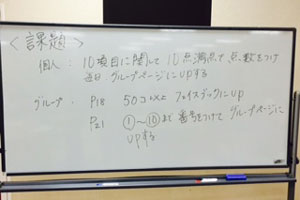 <課題>
個人：10項目に関して10点満点で点数をつけ
毎日 グループページにupする
グループ： P18 50コメ×2 フェイスブックにup
P21 ①〜⑩まで番号をつけてグループページに
upする